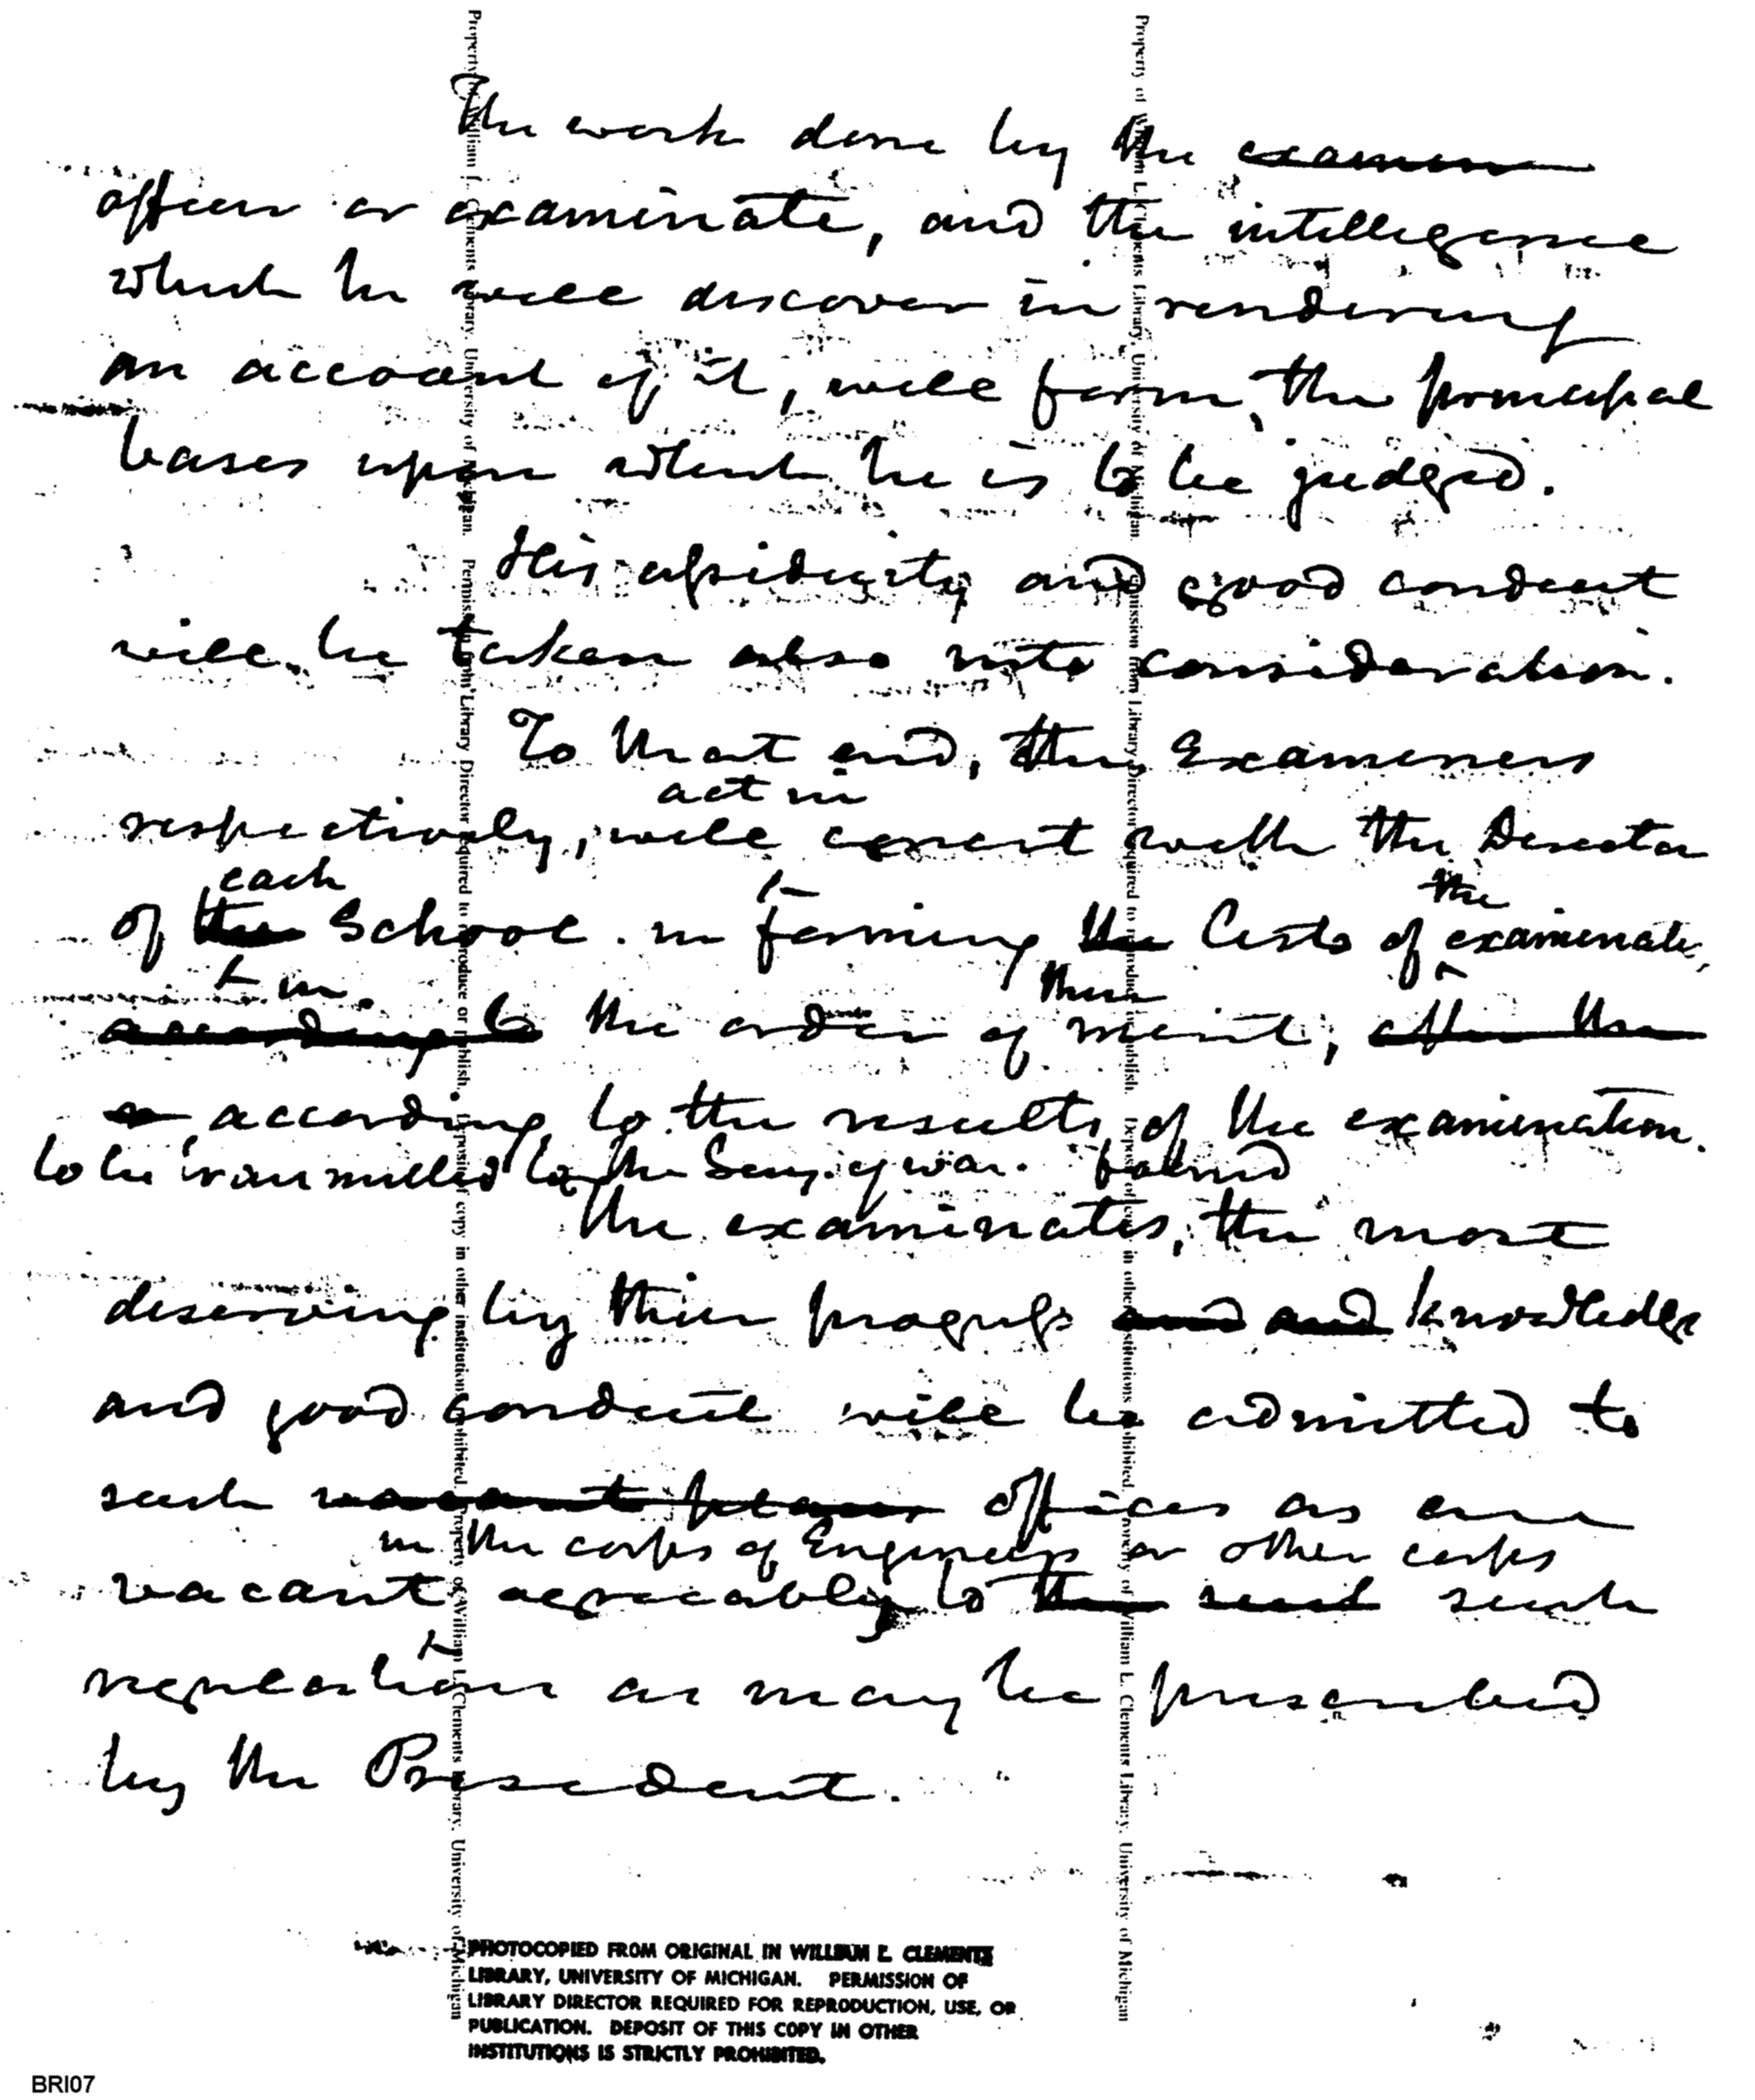 The work done by the examin
officer or examinate, and the intelligence
which he will discover in rendering
an account of it, will form the principal
bases upon which he is to be judged.
His assiduity and good conduct
will be taken also into consideration.
To that end, the Examiners
act in
respectively, will concert with the Director
each
the
of the School in forming the lists of examinates,
in
their
according to the order of merit, after the
according to the results of the examination.
to be transmitted to the Secy. of war. found
The examinates, the most
deserving by their progress and and knowledge
and good conduct will be admitted to
such vacant places offices as are
in the corps of Engineers or other corps
vacant agreeably to the such
regulations as may be prescribed
by the President.
PHOTOCOPIED FROM ORIGINAL IN WILLIAM L. CLEMENTS
LIBRARY, UNIVERSITY OF MICHIGAN. PERMISSION OF
LIBRARY DIRECTOR REQUIRED FOR REPRODUCTION, USE, OR
PUBLICATION. DEPOSIT OF THIS COPY IN OTHER
INSTITUTIONS IS STRICTLY PROHIBITED.
Property of William L. Clements Library, University of Michigan. Permission from Library Director required to reproduce or publish. Deposit of copy in other institutions prohibited. Property of William L. Clements Library, University of Michigan
Property of William L. Clements Library, University of Michigan. Permission from Library Director required to reproduce or publish. Deposit of copy in other institutions prohibited. Property of William L. Clements Library, University of Michigan
BRI07